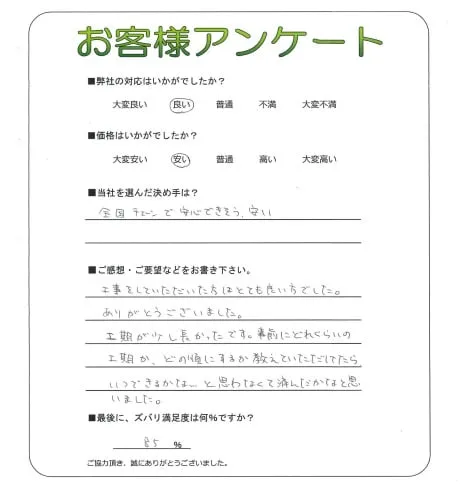 お客様アンケート
■弊社の対応はいかがでしたか？
大変良い 良い 普通 不満 大変不満
■価格はいかがでしたか？
大変安い 安い 普通 高い 大変高い
■当社を選んだ決め手は？
全国チェーンで安心できそう、安い
■ご感想・ご要望などをお書き下さい。
工事をしていただいた方はとても良い方でした。
ありがとうございました。
工期が少し長かったです。事前にどれくらいの
工期か、どの順にするか教えていただけてたら
いつできるかな…と思わなくて済んだかなと思
いました。
■最後に、ズバリ満足度は何%ですか？
85 %
ご協力頂き、誠にありがとうございました。